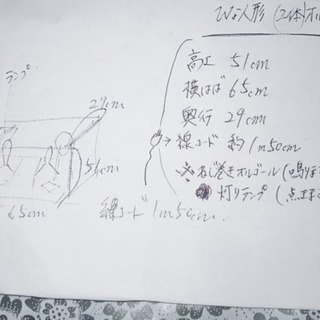 ひな人形 (2体)オル
ランプ
高工 51cm
横はば 65cm
奥行 29cm
線コード 約1m50cm
ねじ巻きオルゴール(鳴りま
灯りランプ(点き
29cm
51cm
65cm
線コード 1m50cm